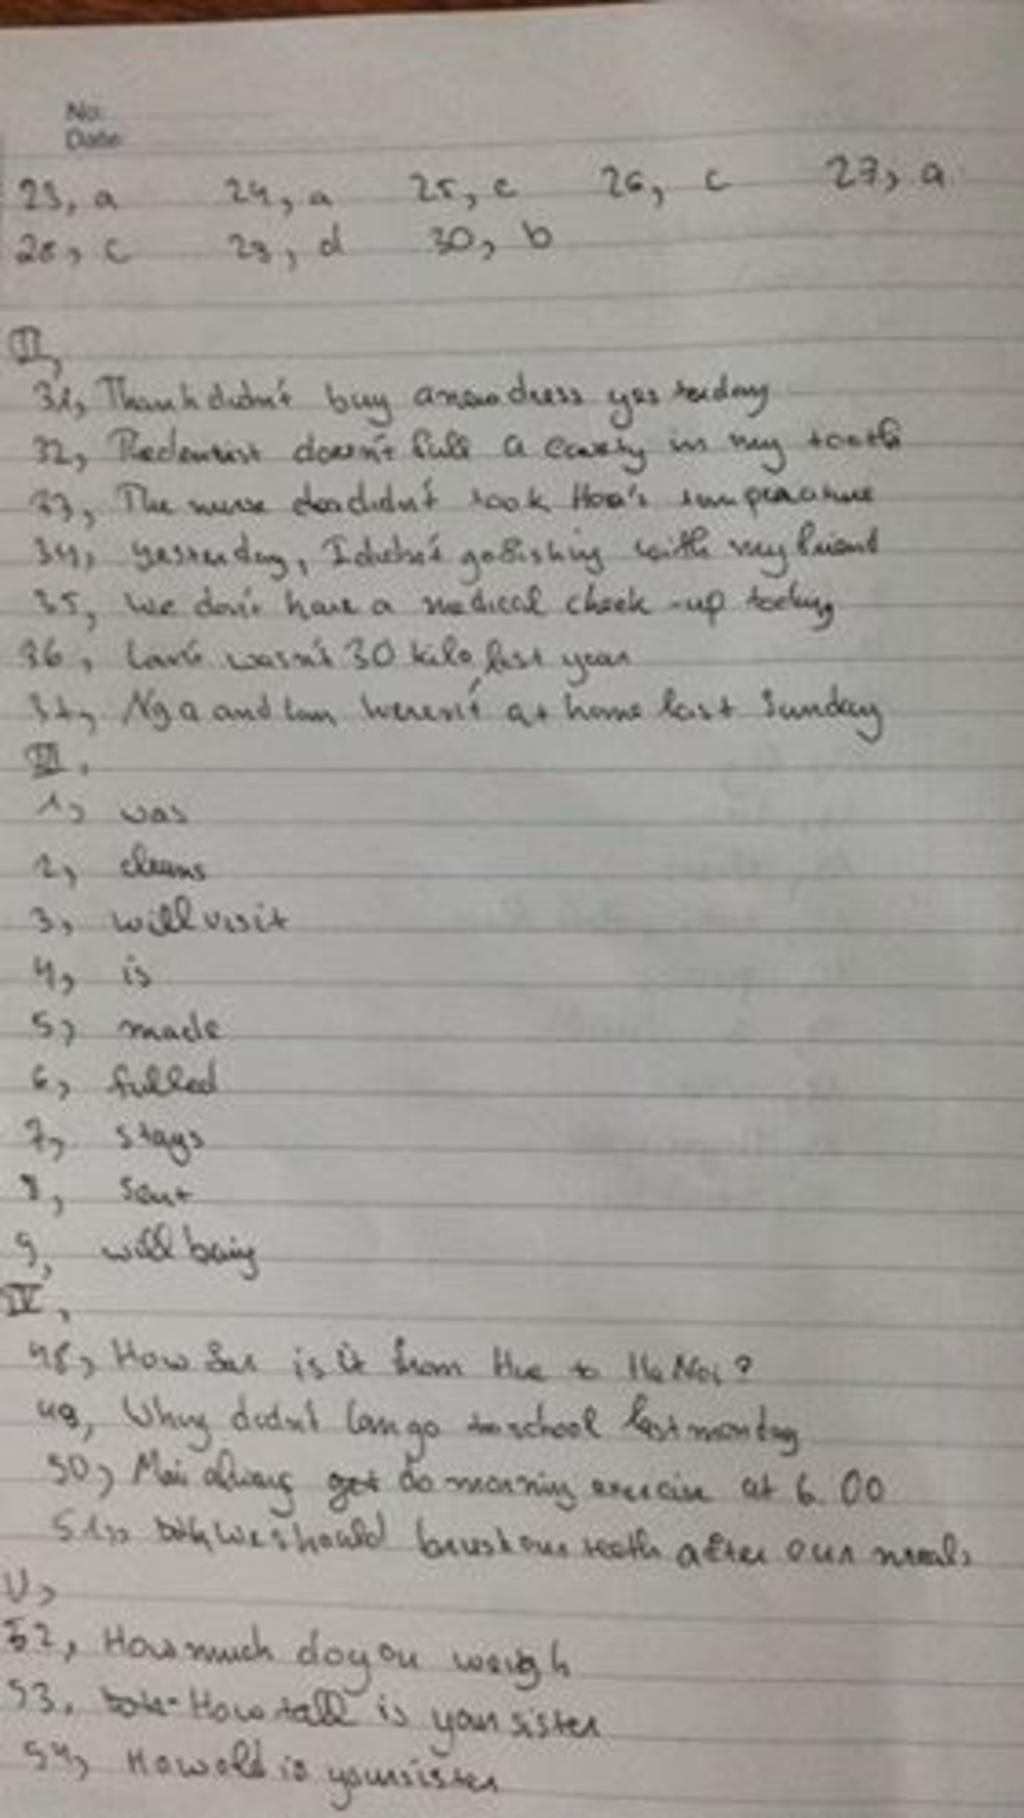 No:
Date:
23, a 24, a 25, c 26, c 27, a
28, c 29, d 30, b
II,
31, Thanh didn't buy a new dress yesterday
32, The dentist doesn't full a cavity in my tooth
33, The nurse didn't took Hoa's temperature
34, Yesterday, I didn't go fishing with my friend
35, We don't have a medical check-up today
36, wasn't 30 kilo last year
37, Nga and Lan weren't at home last Sunday
III.
1, was
2, cleans
3, will visit
4, is
5, made
6, fulled
7, stays
8, sent
9, will
IV,
48, How far is it from Hue to Ha Noi?
49, Why didn't Lan go to school last monday
50, Mai always do morning exercise at 6.00
51, We should brush our teeth after our meals
V,
52, How much do you weigh
53. How tall is your sister
54, How old is your sister